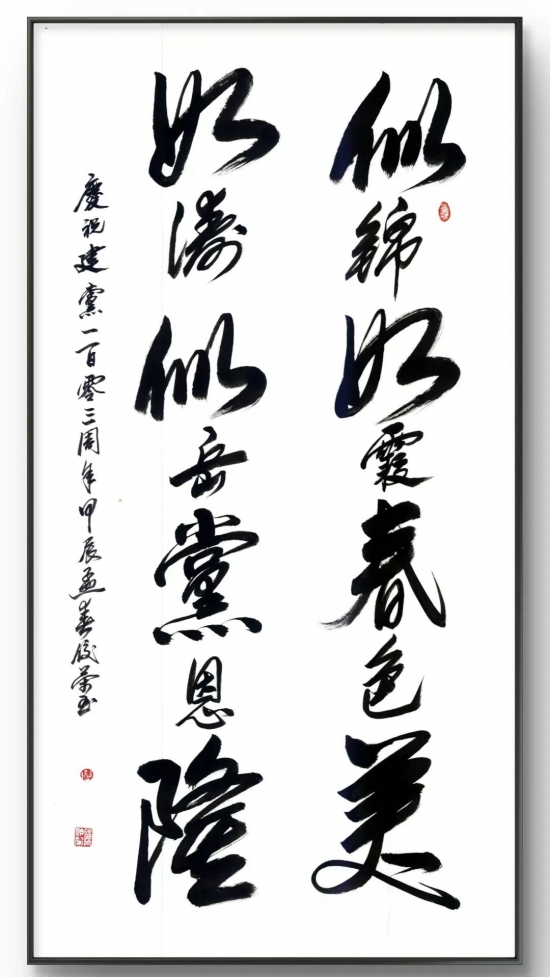 似錦如霞春色美
如濤似岳黨恩隆
慶祝建黨一百零三周年甲辰孟春俊榮书